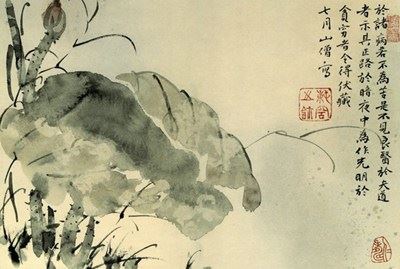 於諸病若不為苦是不見良醫於失道
者示其正路於暗夜中為作光明於
貧窮者令得伏藏
七月山僧寫